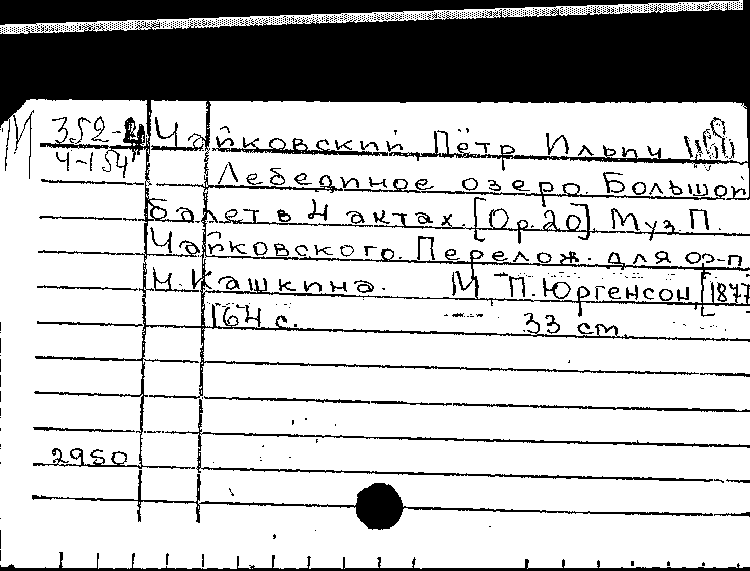 М 352-4 Чайковский, Пётр Ильич
Ч-154
Лебединое озеро. Большой
балет в 4 актах. [Op. 20]. Муз. П.
Чайковского. Перелож. для ф-п.
Н. Кашкина. М., П. Юргенсон, [1877
164 с. — 33 см.
2950